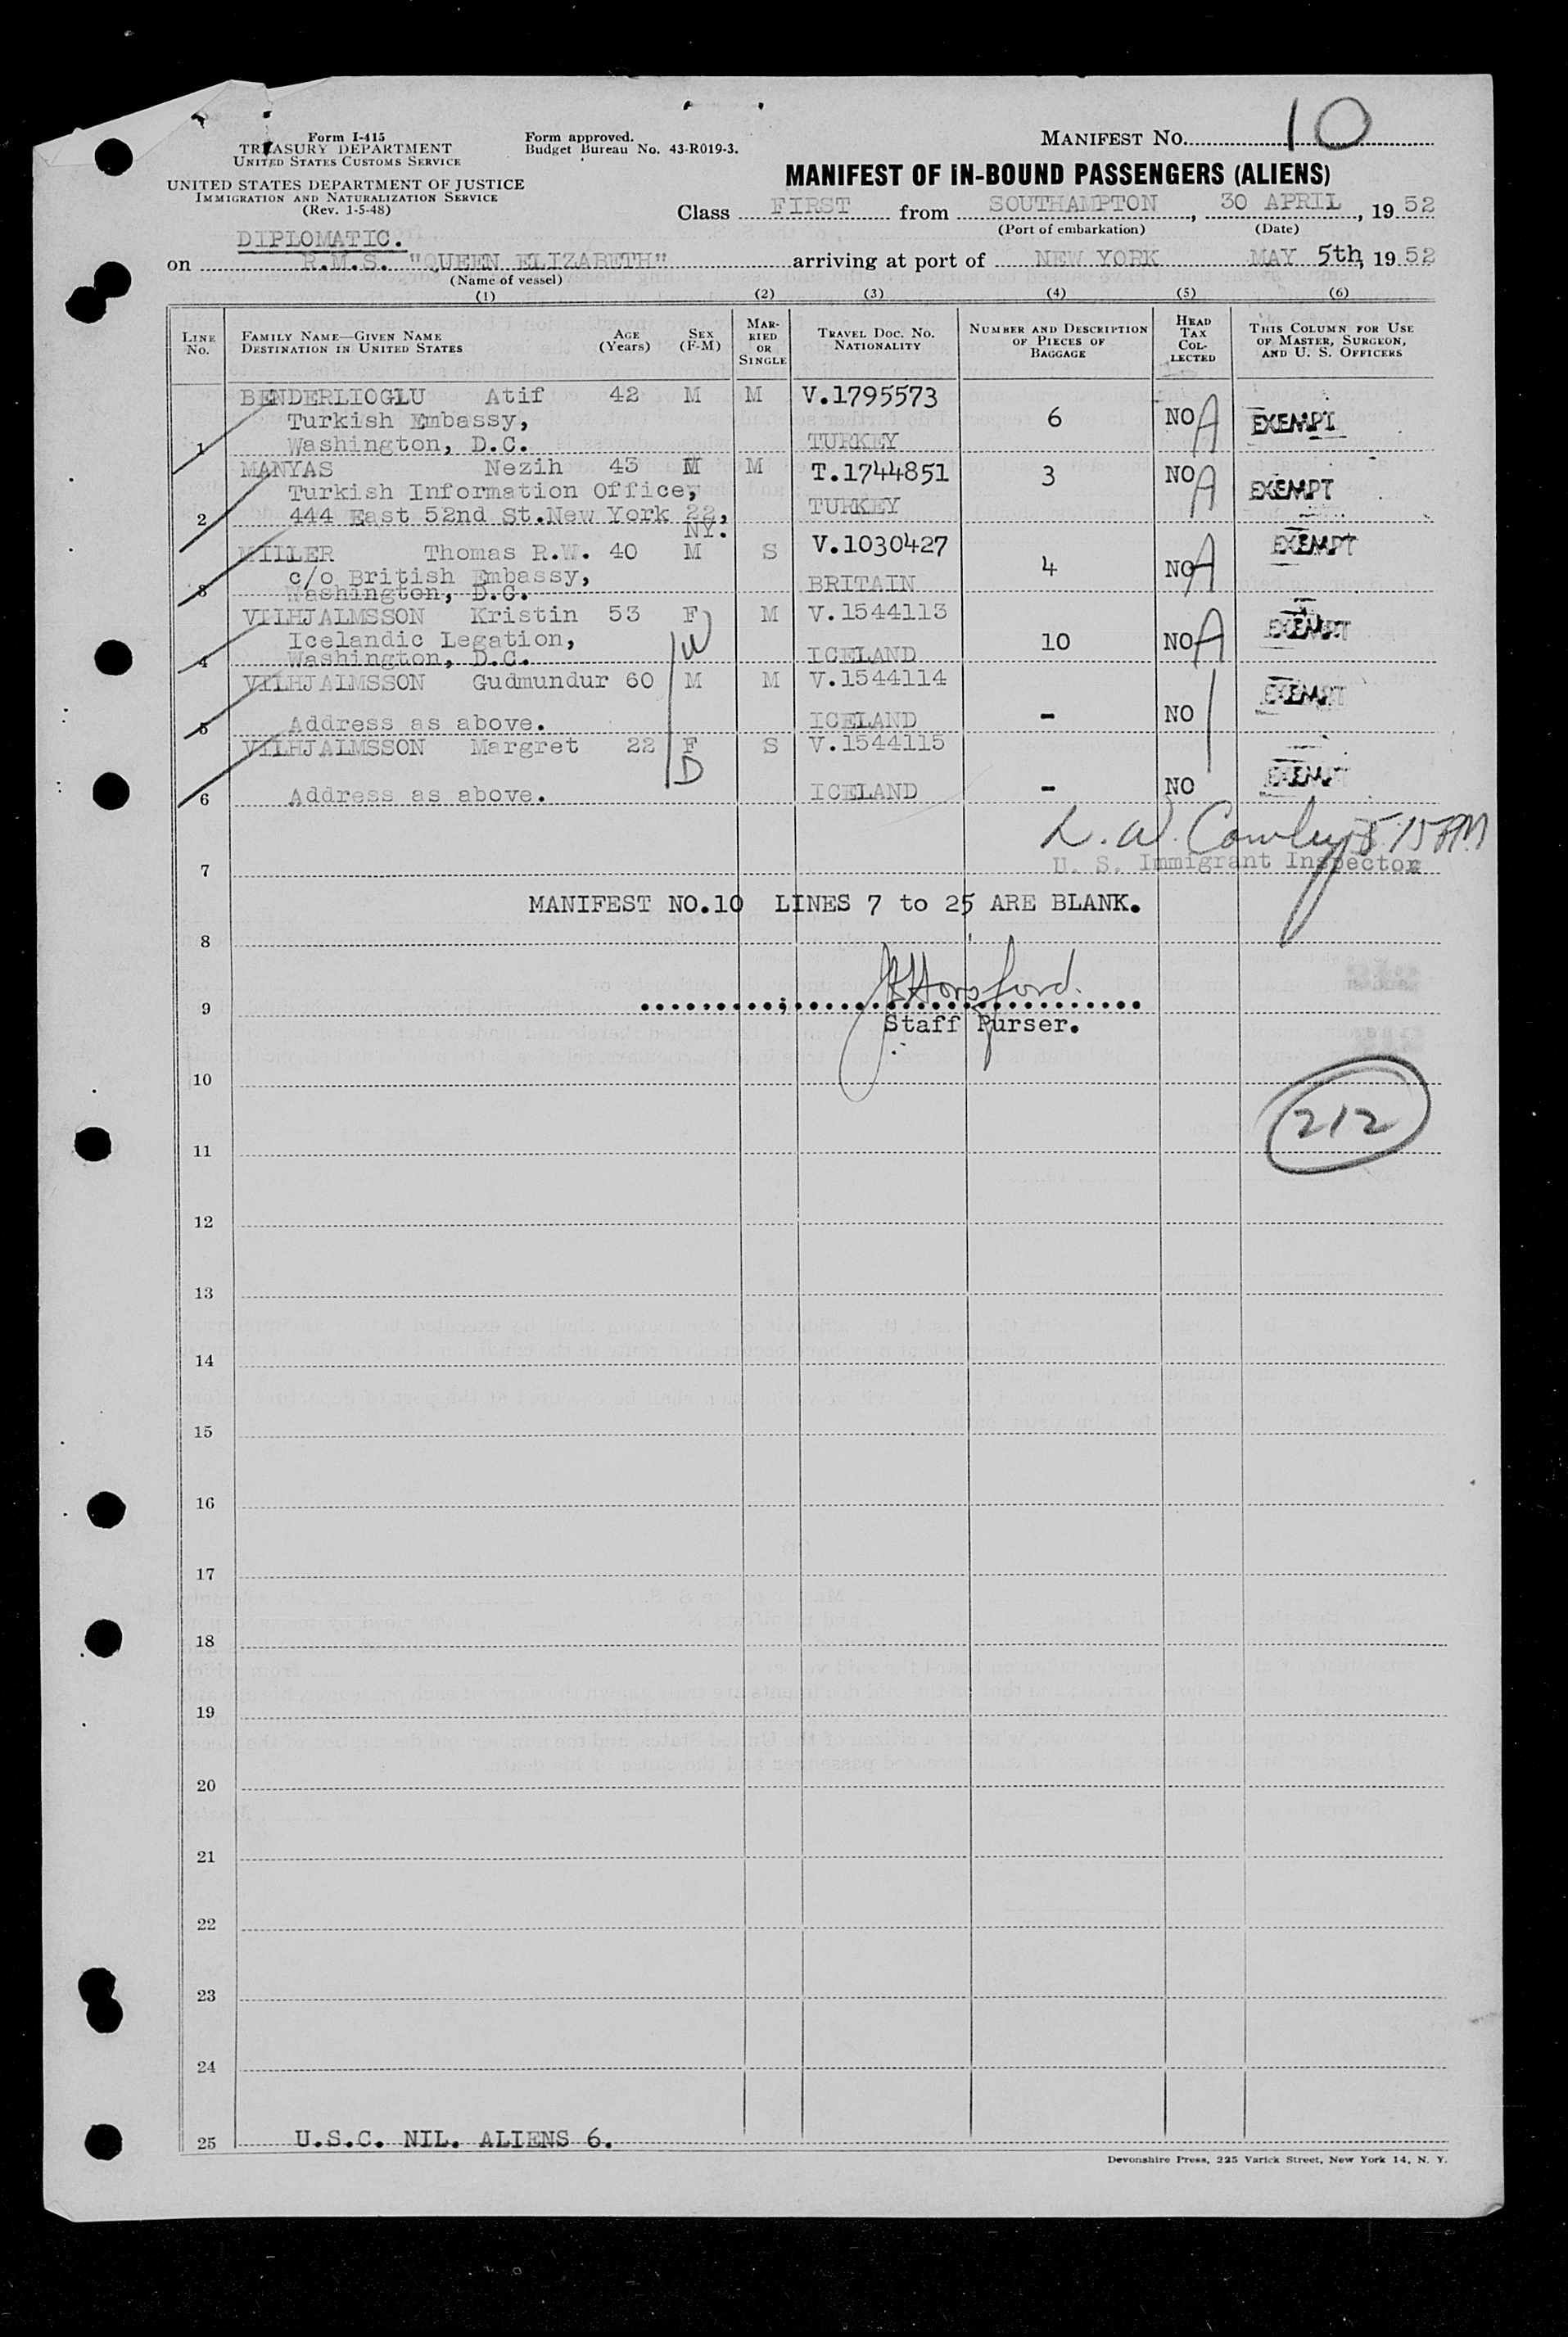 Form I-415
TREASURY DEPARTMENT
UNITED STATES CUSTOMS SERVICE
UNITED STATES DEPARTMENT OF JUSTICE
IMMIGRATION AND NATURALIZATION SERVICE
(Rev. 1-5-48)
Form approved.
Budget Bureau No. 43-R019-3.
MANIFEST NO. 10
MANIFEST OF IN-BOUND PASSENGERS (ALIENS)
Class FIRST from SOUTHAMPTON, 30 APRIL, 19 52
(Port of embarkation) (Date)
DIPLOMATIC.
on R.M.S. "QUEEN ELIZABETH" arriving at port of NEW YORK MAY 5th, 19 52
(Name of vessel)
(1) (2) (3) (4) (5) (6)
LINE NO. FAMILY NAME—GIVEN NAME DESTINATION IN UNITED STATES AGE (Years) SEX (F-M) MARRIED OR SINGLE TRAVEL DOC. NO. NATIONALITY NUMBER AND DESCRIPTION OF PIECES OF BAGGAGE HEAD TAX COLLECTED THIS COLUMN FOR USE OF MASTER, SURGEON, AND U. S. OFFICERS
BENDERLIOGLU Atif 42 M M V.1795573
Turkish Embassy, 6 NO A EXEMPT
1 Washington, D.C. TURKEY
MANYAS Nezih 43 M M T.1744851 3 NO A EXEMPT
Turkish Information Office,
2 444 East 52nd St. New York 22, NY. TURKEY
MILLER Thomas R.W. 40 M S V.1030427 EXEMPT
c/o British Embassy, 4 NO A
3 Washington, D.C. BRITAIN
VILHJALMSSON Kristin 53 F W M V.1544113
Icelandic Legation, 10 NO A EXEMPT
4 Washington, D.C. ICELAND
VILHJALMSSON Gudmundur 60 M M V.1544114 EXEMPT
5 Address as above. ICELAND - NO
VILHJALMSSON Margret 22 F D S V.1544115
6 Address as above. ICELAND - NO EXEMPT
L. W. Cowley 5:15 PM
7 U. S. Immigrant Inspector
MANIFEST NO.10 LINES 7 to 25 ARE BLANK.
8
Horsford.
9
Staff Purser.
10
212
11
12
13
14
15
16
17
18
19
20
21
22
23
24
25 U.S.C. NIL. ALIENS 6.
Devonshire Press, 225 Varick Street, New York 14, N. Y.